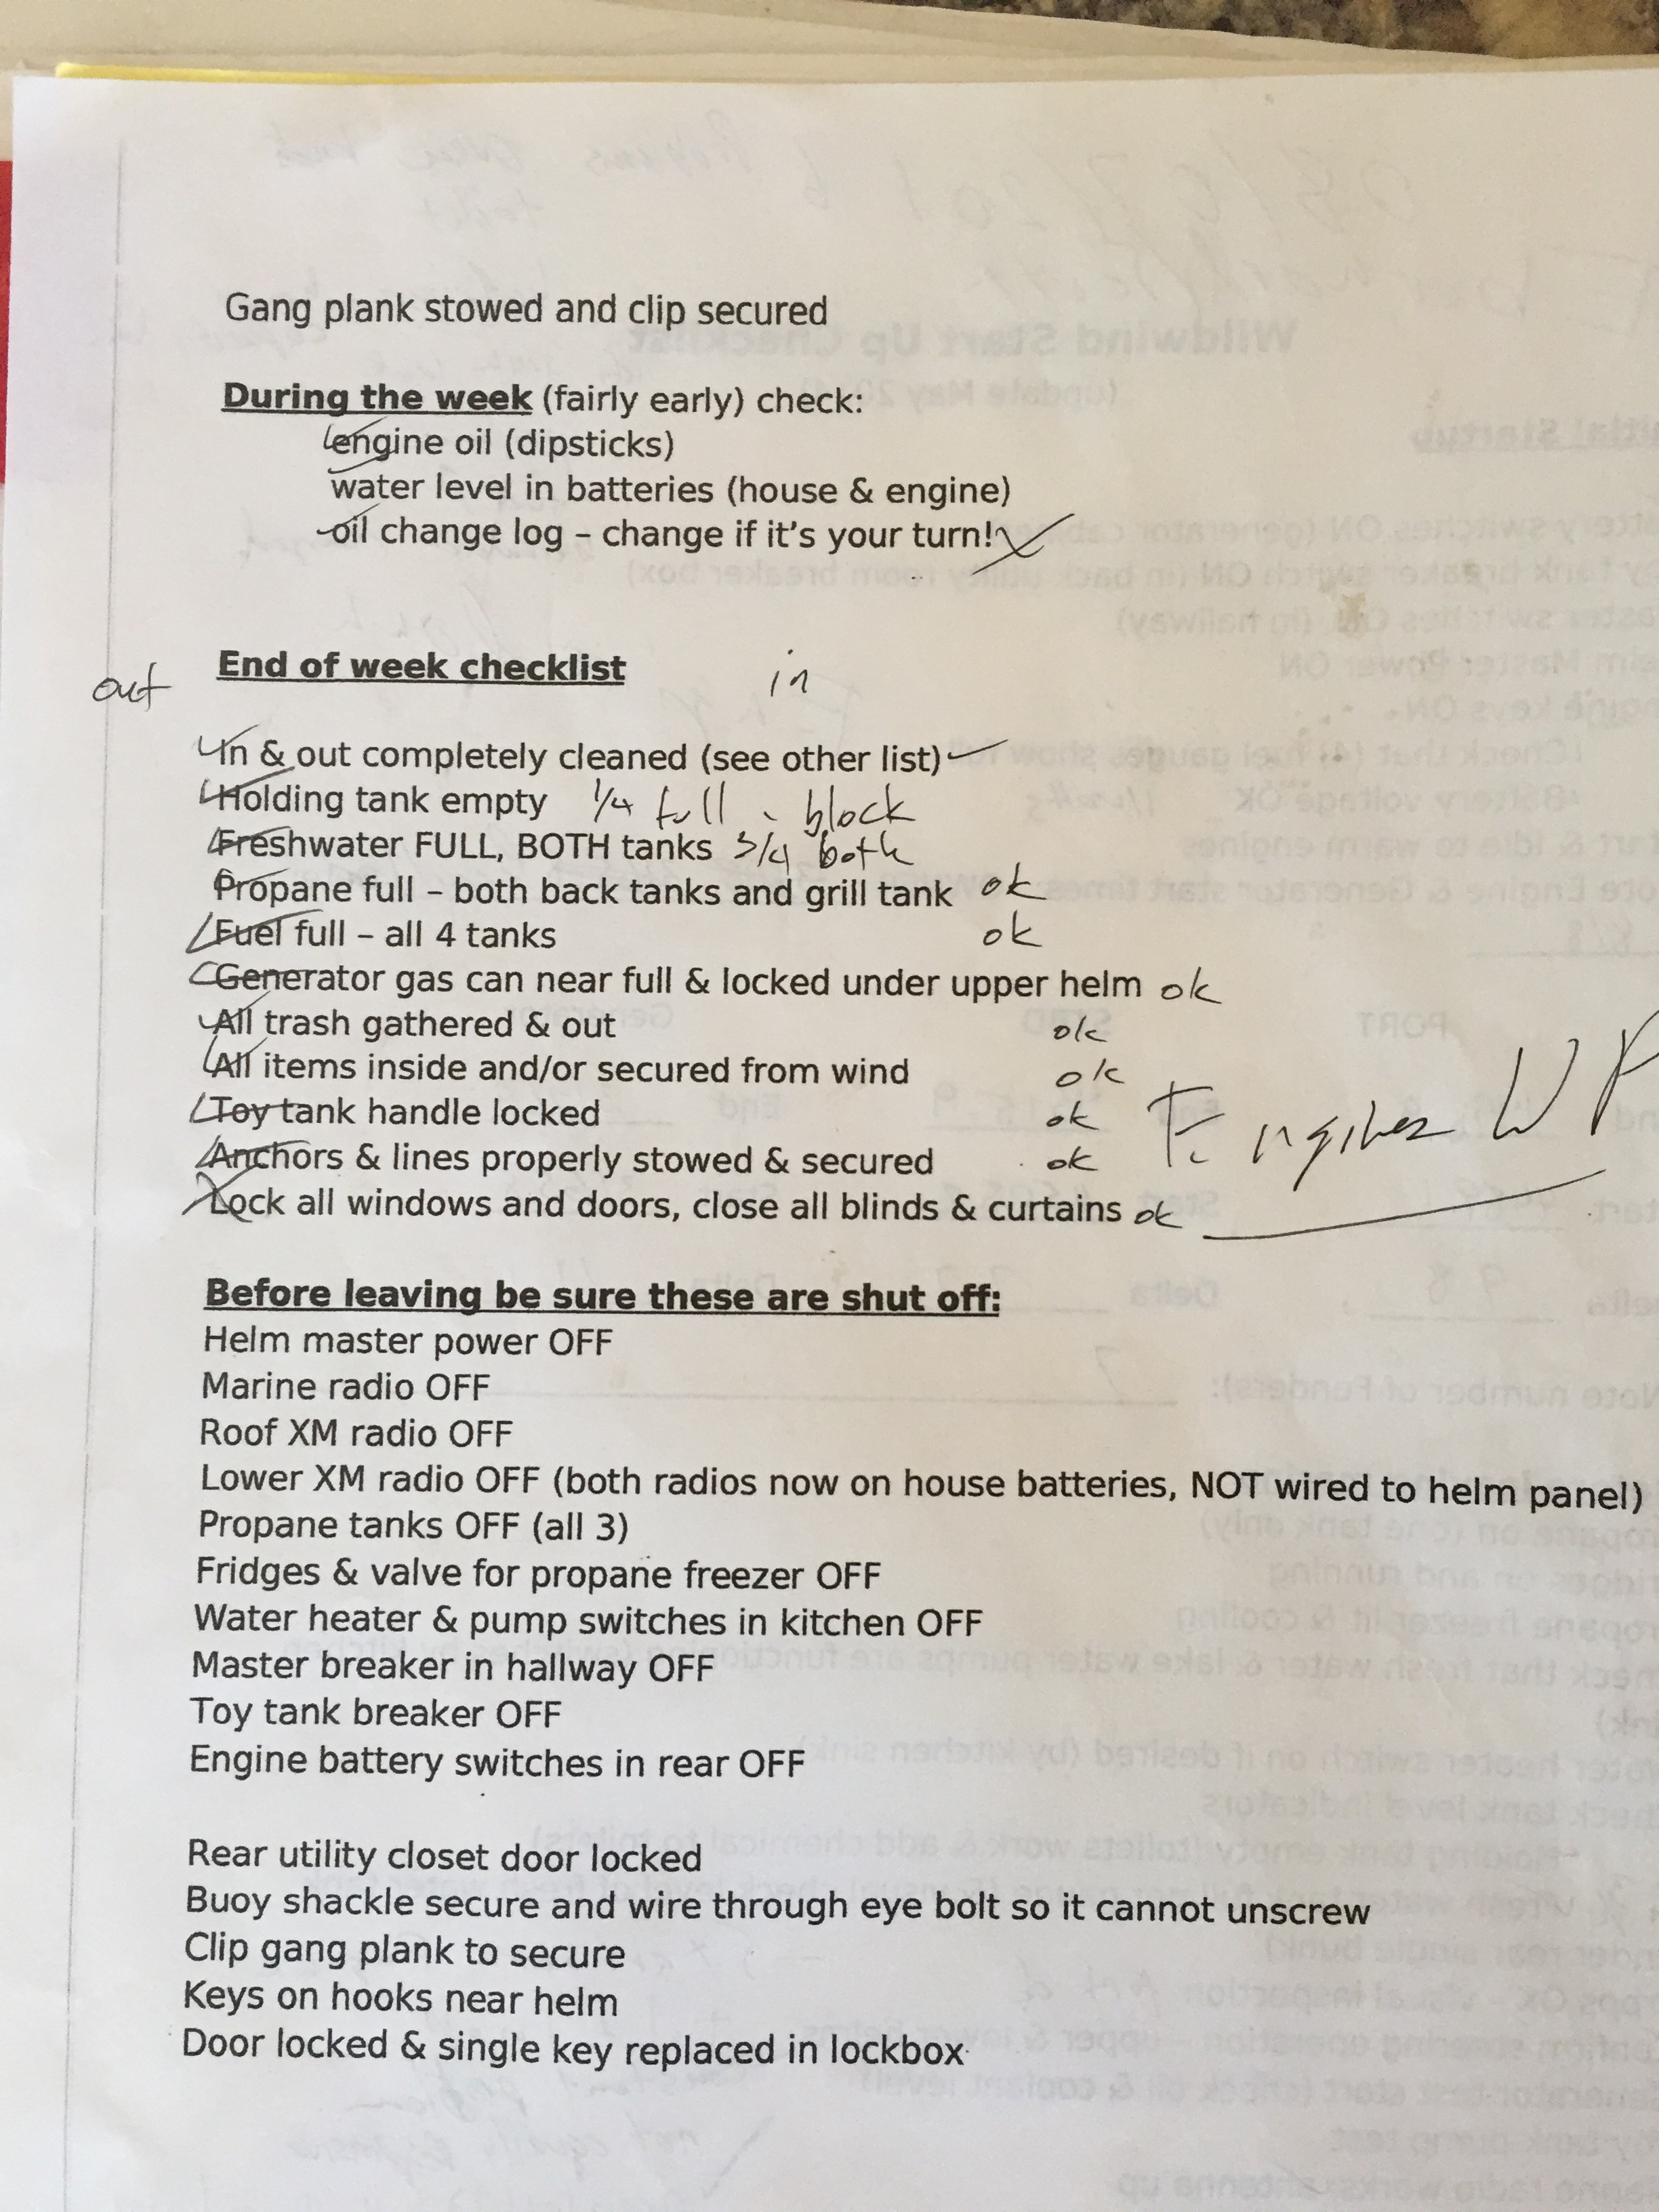 Gang plank stowed and clip secured
During the week (fairly early) check:
engine oil (dipsticks)
water level in batteries (house & engine)
oil change log – change if it's your turn!
out End of week checklist in
In & out completely cleaned (see other list)
Holding tank empty 1/4 full - block
Freshwater FULL, BOTH tanks 3/4 both
Propane full – both back tanks and grill tank ok
Fuel full – all 4 tanks ok
Generator gas can near full & locked under upper helm ok
All trash gathered & out ok
All items inside and/or secured from wind ok
Toy tank handle locked ok Engines UP
Anchors & lines properly stowed & secured ok
Lock all windows and doors, close all blinds & curtains ok
Before leaving be sure these are shut off:
Helm master power OFF
Marine radio OFF
Roof XM radio OFF
Lower XM radio OFF (both radios now on house batteries, NOT wired to helm panel)
Propane tanks OFF (all 3)
Fridges & valve for propane freezer OFF
Water heater & pump switches in kitchen OFF
Master breaker in hallway OFF
Toy tank breaker OFF
Engine battery switches in rear OFF
Rear utility closet door locked
Buoy shackle secure and wire through eye bolt so it cannot unscrew
Clip gang plank to secure
Keys on hooks near helm
Door locked & single key replaced in lockbox